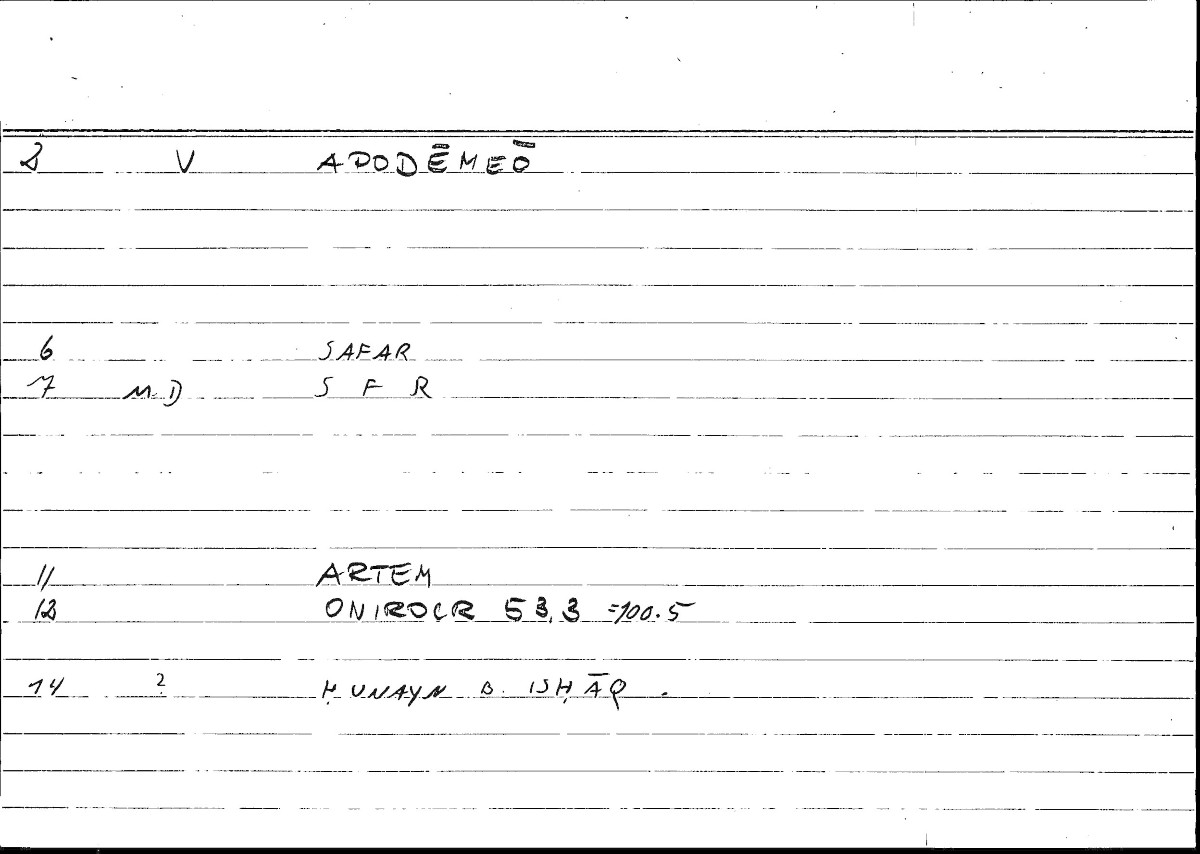 2 V APODĒMEŌ
6 SAFAR
7 M.D S F R
11 ARTEM
12 ONIROCR 53,3 =100.5
14 ? ḤUNAYN B. ISḤĀQ .